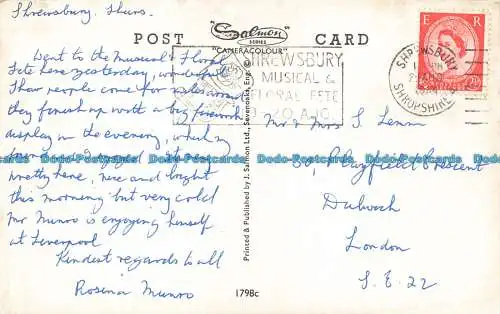 Shrewsbury, Shrops.
POST "Salmon SERIES CARD
"CAMERACOLOUR"
Went to the Musical & Floral
Fete here yesterday, wonderful
Show people come for miles round
they finish up with a big firework
display in the evening, which my
it is
pretty here, nice and bright
this morning but very cold
Mr Munro is enjoying himself
at Liverpool
Kindest regards to all
Rosina Munro
Printed & Published by J. Salmon Ltd., Sevenoaks, Eng. ©
1798c
SHREWSBURY
MUSICAL &
FLORAL FETE
SHREWSBURY
SHROPSHIRE
E R
Mr & Mrs S. Lemm
Playfield Crescent
Dulwich
London
S.E. 22
Dodo-Postcards.com